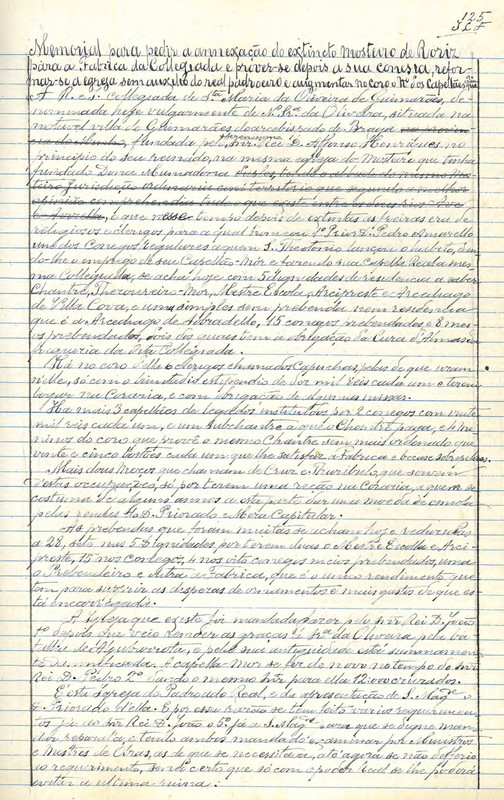 125
Memorial para pedir a annexação do extincto mosteiro de Roriz
para a Fabrica da Collegiada e prover-se depois a sua conesia, refor-
mar-se a egreja sem auxilio do real padroeiro e augmentar no coro o nº dos Capellães
A R. e I. Collegiada de Stª Maria da Oliveira de Guimarães, de-
nominada hoje vulgarmente de N. Srª da Oliveira, situada na
notavel villa de Guimarães do arcebispado de Braga
fundada pelo Snr. Rei D. Affonso Henriques no
principio do seu reinado, na mesma egreja do Mosteiro que tinha
fundado Dona Mumadona
e que n'esse tempo depois de extinctas as freiras era de
religiosos e clerigos para a qual nomeou 1º Prior D. Pedro Amarello
um dos Conegos regulares a quem S. Theotonio lançou o habito, dan-
do-lhe o emprego de seu Capellão-Mór e fazendo sua Capella Real a mes-
ma Collegiada, se acha hoje com 5 Dignidades de residencia a saber
Chantre, Thezoureiro-Mór, Mestre Escola, Arcipreste e Arcediago
de Villa Cova, e uma simples sem prebenda nem residencia
que é a Arcediago de Sobradello, 15 conegos prebendados e 8 mei-
os prebendados, dois dos quaes tem a obrigação da Cura d'Almas da
freguezia da dita Collegiada.
Ha no coro clerigos chamados Capuchas, pelas de que usam
n'elle, só com o limitado estipendio de dez mil reis cada um e terem
logar na Coraria, e com obrigação de algumas missas.
Ha mais 3 capellães de legados instituidos por 2 conegos com vinte
mil reis cada um, e um subchantre a que o Chantre paga, e 4 me-
ninos do coro que provê o mesmo Chantre sem mais ordenado que
vinte e cinco tostões cada um que lhe satisfaz a Fabrica e becas e sobrepelizes.
Mais dous Moços que chamam de Cruz e Thuribulo, que servem
d'estas occupações, só por terem uma ração na Coraria, e quem se
costuma de alguns annos a esta parte dar uma moeda de esmola
pelas rendas do D. Priorado e Meza Capitular.
As prebendas que foram muitas se acham hoje reduzidas
a 28, sete nas 5 Dignidades, por terem duas o Mestre Escolla e Arci-
preste, 15 nos conegos, 4 nos oito conegos meios prebendados, uma
o Prebendeiro e outra a Fabrica, que é o unico rendimento que
tem para supprir as despezas de ornamentos e mais gastos de que es-
tá encarregada.
A Igreja que existe foi mandada fazer pelo Snr. Rei D. João
1º depois que veio render as graças á Srª da Oliveira pela ba-
talha de Aljubarrota, e pela sua antiguidade está summamen-
te damnificada. A capella Mór se fez de novo no tempo do Snr
Rei D. Pedro 2º dando o mesmo Snr. para ella 12:000 cruzados.
É esta Igreja do Padroado Real, e da apresentação de S. Magᵉ
o D. Priorado d'ella. E por esse razão se tem feito varios requerimen-
tos já ao Snr Rei D. João o 5º, já a S. Magᵉ para que se digne man-
dar reparal-a, e tendo ambos mandado examinar por Ministros
e Mestres de Obras, as de que se necessitava, até agora se não deferio
ao requerimento, sendo certo que só com o poder Real se lhe poderá
evitar a ultima ruina.